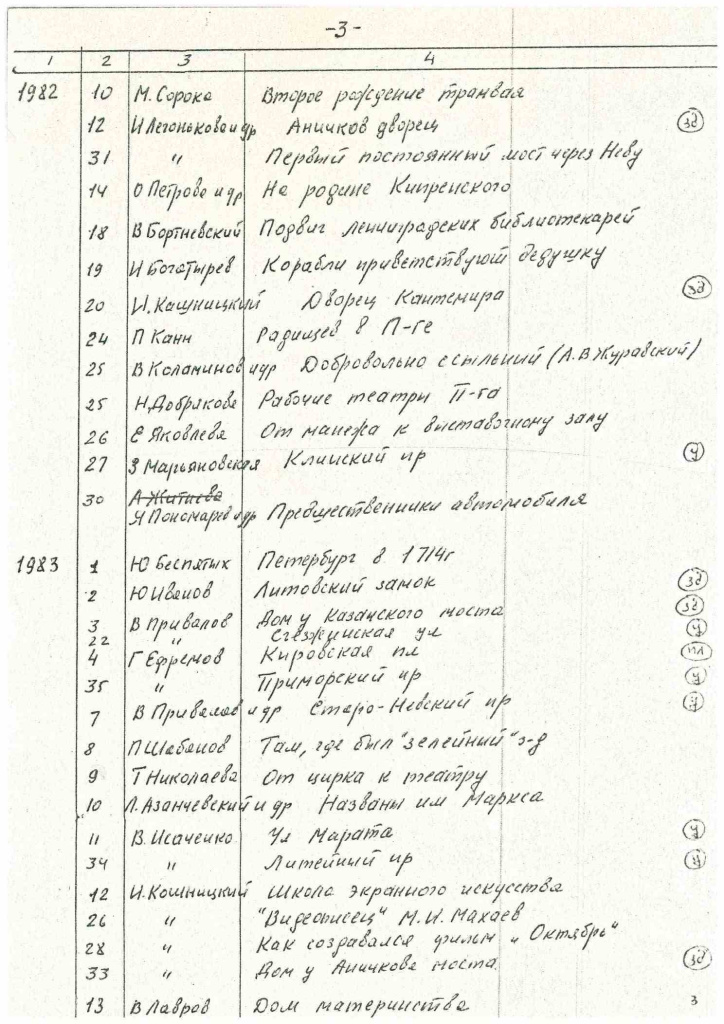 -3-
1 2 3 4
1982 10 М. Сорока Второе рождение трамвая
12 И Легонькова и др Аничков дворец зд
31 " Первый постоянный мост через Неву
14 О Петрова и др На родине Кипренского
18 В Бортневский Подвиг ленинградских библиотекарей
19 И Богатырев Корабли приветствуют дедушку
20 И. Кашницкий Дворец Кантемира зд
24 П Канн Радищев в П-ге
25 В Коламинов и др Добровольно сстыльний (А. В Журавский)
25 Н. Добрякова Рабочие театры П-га
26 Е Яковлева От манежа к выставочному залу
27 З Марьяновская Клинский пр у
30 А Житнева
Я Пономарев и др Предшественники автомобиля
1983 1 Ю Беспятых Петербург в 1714г
2 Ю Иванов Литовский замок зд
3 В Привалов Дом у Казанского моста зд
22 " Сезжинская ул у
4 Г Ефремов Кировская пл пл
35 " Приморский пр у
7 В Привалов и др Старо-Невский пр у
8 П Шабанов Там, где был "зелейный" з-д
9 Т Николаева От цирка к театру
10 Л. Азанчевский и др Названы им Маркса
11 В. Исаченко Ул Марата у
34 " Литейный пр у
12 И. Кошницкий Школа экранного искусства
26 " "Видеописец" М. И. Махаев
28 " Как создавался фильм "Октябрь"
33 " Дом у Аничкова моста зд
13 В Лавров Дом материнства 3